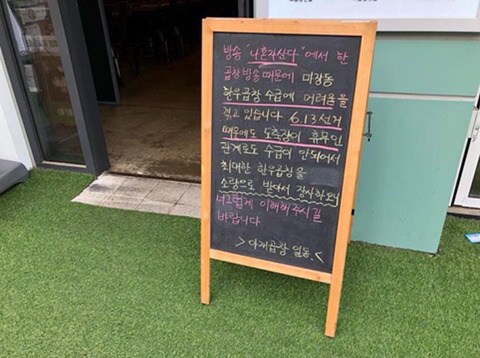 방송 "나혼자산다"에서 한
곱창방송때문에 마장동
한우곱창 수급에 어려움을
겪고 있습니다 6.13선거
때문에도 도축장이 휴무인
관계로도 수급이 안되어서
최대한 한우곱창을
소량으로 받아서 장사하오니
너그럽게 이해해주시길
바랍니다
>아재곱창 일동.<